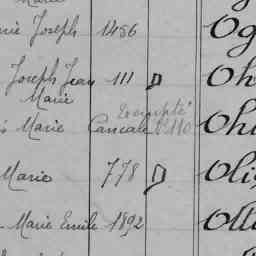 Marie
Joseph 1456 Og
Joseph Jean 111 D Oh
Marie
Exempté
Marie Cancale Ohi
Marie 778 D Oli
Marie Emile 1892 Oll